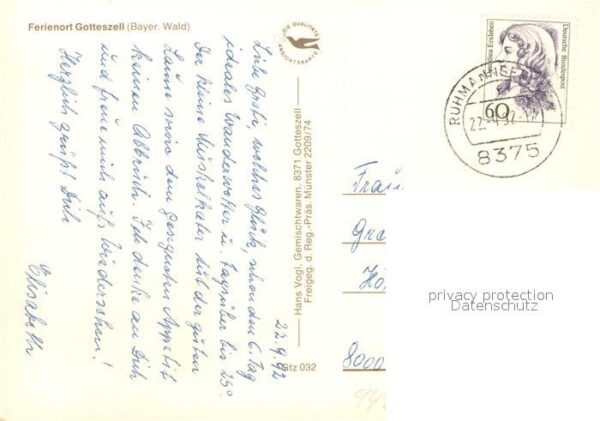 Ferienort Gotteszell (Bayer. Wald)
DIE QUALITÄTS
ANSICHTSKARTE
22.9.92
Liebe Gresti, welches Glück, schon den 6. Tag
ideales Wanderwetter u. tagsüber bis 25°.
Der kleine Muskelkater tut der guten
Laune sowie dem gesegneten Appetit
keinen Abbruch. Ich denke an Dich
und freue mich aufs Wiedersehen!
Herzlich grüßt Dich
Elisabeth
Hans Vogl, Gemischtwaren, 8371 Gotteszell
Freigeg. d. Reg.-Präs. Münster 2209/74
Gtz 032
Deutsche Bundespost
60
RUHMANNSFE
22.-9.92
8375
Frau
Gra
8000
privacy protection
Datenschutz